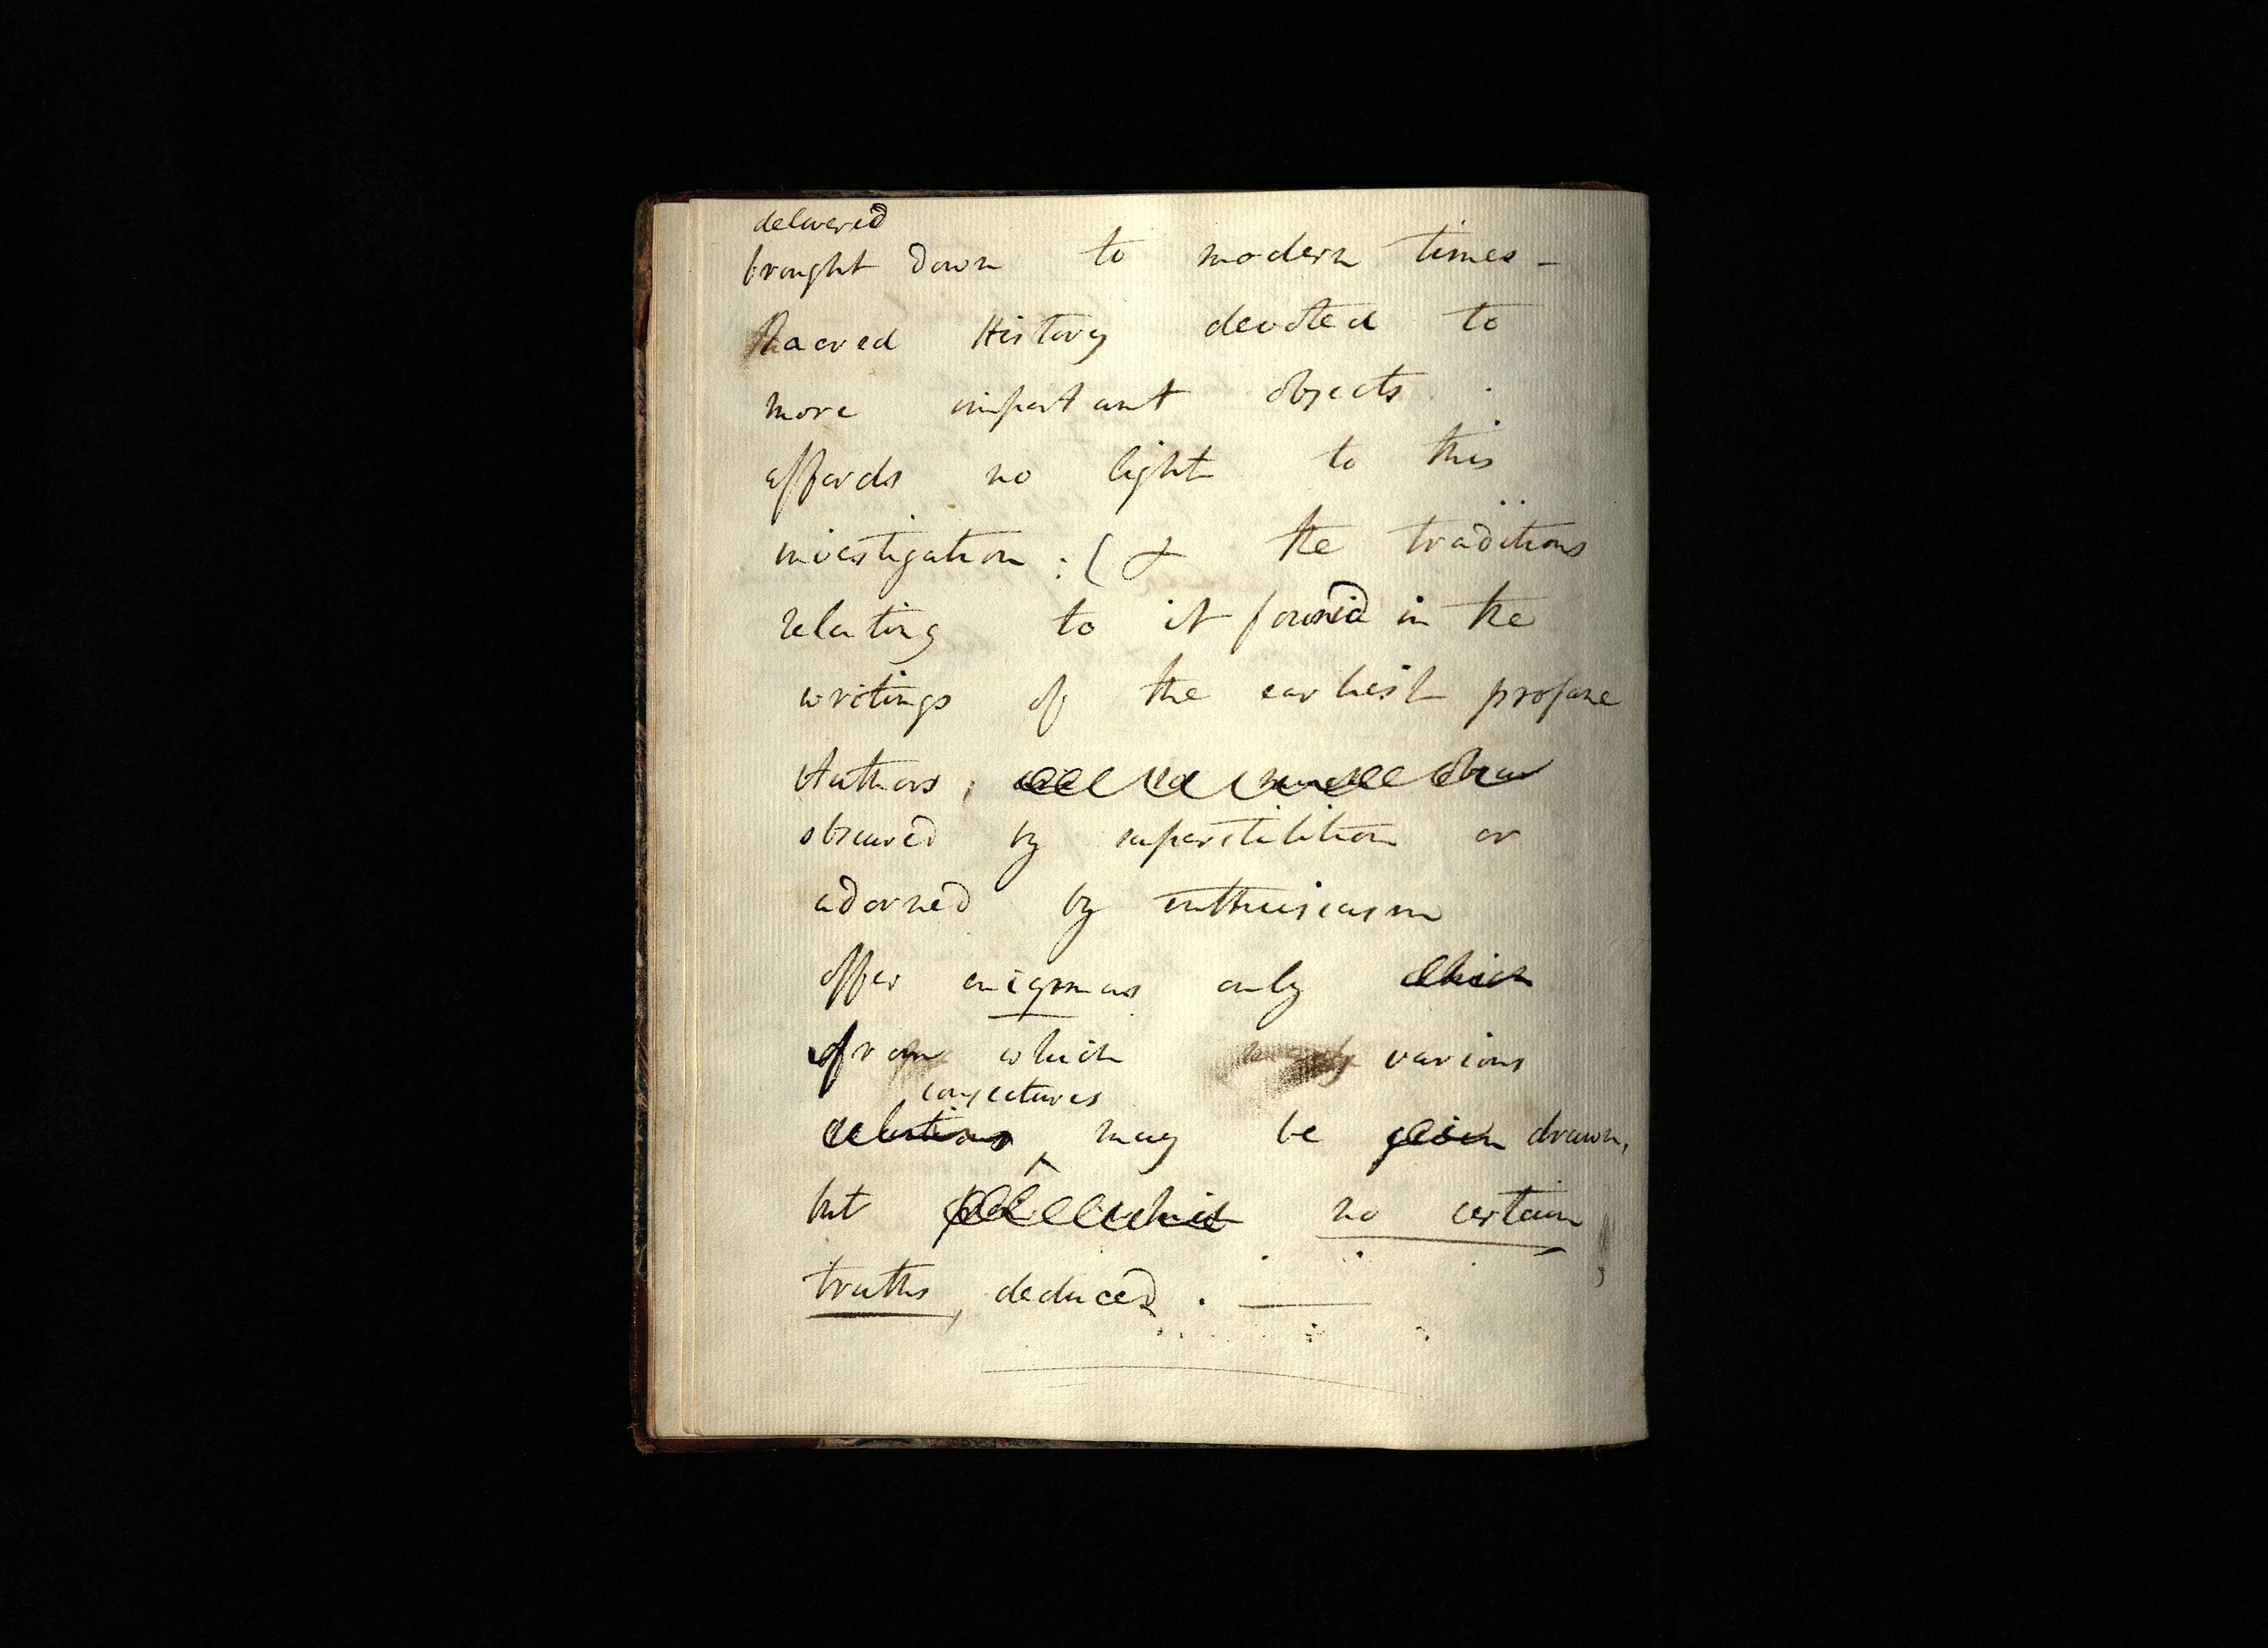 delivered
brought down to modern times -
Sacred History devoted to
more important objects
affords no light to this
investigation : ( & the traditions
relating to it found in the
writings of the earliest profane
Authors,
obscured by superstitition or
adorned by enthusiasm
offer enigmas only which
from which various
conjectures
relations may be given drawn,
but no certain
truths, deduced. —